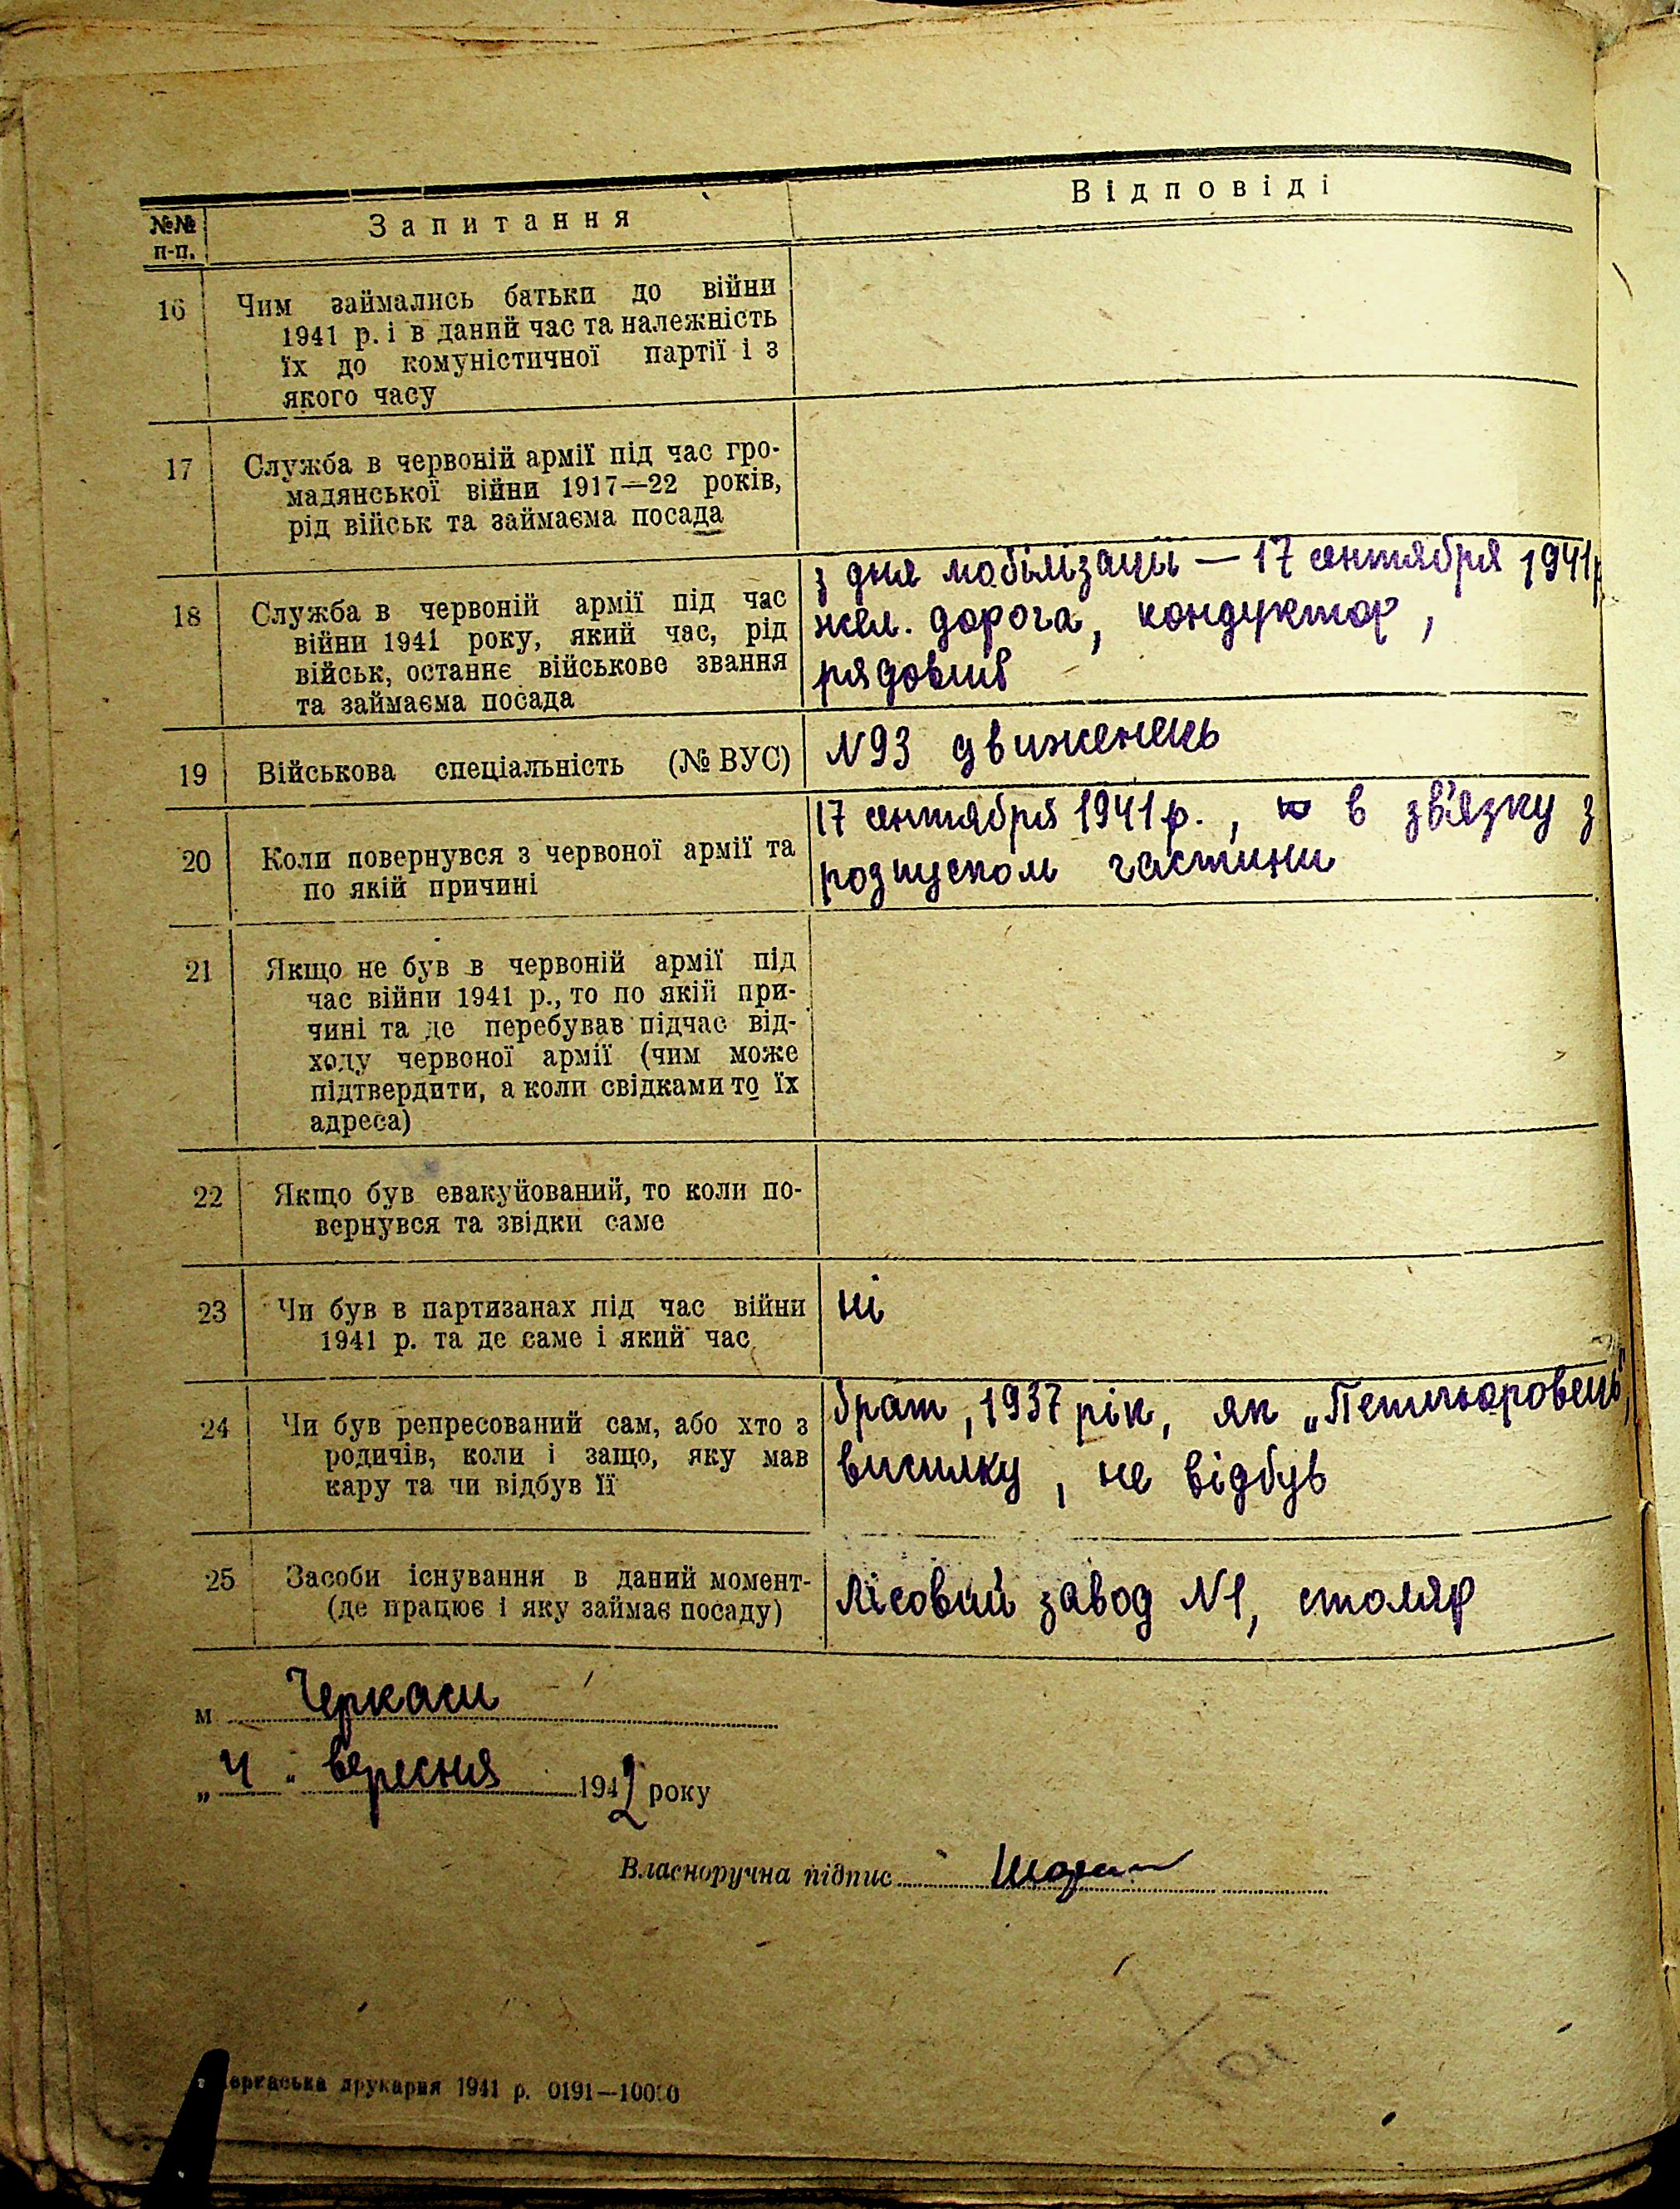 №№ п-п.
Запитання
Відповіді
16
Чим займались батьки до війни
1941 р. і в даний час та належність
їх до комуністичної партії і з
якого часу
17
Служба в червоній армії під час гро-
мадянської війни 1917—22 років,
рід військ та займаєма посада
18
Служба в червоній армії під час
війни 1941 року, який час, рід
військ, останнє військове звання
та займаєма посада
з дня мобілізаціі — 17 сентября 1941р
жел. дорога, кондуктор,
рядовий
19
Військова спеціальність (№ ВУС)
N93 движенець
20
Коли повернувся з червоної армії та
по якій причині
17 сентября 1941 р., в зв'язку з
розпуском частини
21
Якщо не був в червоній армії під
час війни 1941 р., то по якій при-
чині та де перебував підчас від-
ходу червоної армії (чим може
підтвердити, а коли свідками то їх
адреса)
22
Якщо був евакуйований, то коли по-
вернувся та звідки саме
23
Чи був в партизанах під час війни
1941 р. та де саме і який час
ні
24
Чи був репресований сам, або хто з
родичів, коли і защо, яку мав
кару та чи відбув її
брат, 1937 рік, як „Петлюровець",
висилку, не відбув
25
Засоби існування в даний момент-
(де працює і яку займає посаду)
Лісовий завод N1, столяр
м Черкаси
„4" вересня 1942 року
Власноручна підпис
Черкаська друкарня 1941 р. 0191—10000